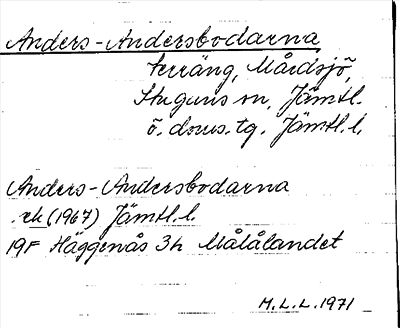 Anders-Andersbodarna
terräng, Mårdsjö,
Stuguns sn, Jämtl.
ö. doms. tg. Jämtl. l.
Anders-Andersbodarna
ek (1967) Jämtl. l.
19F Häggenås 3h Målålandet
M.L.L. 1971